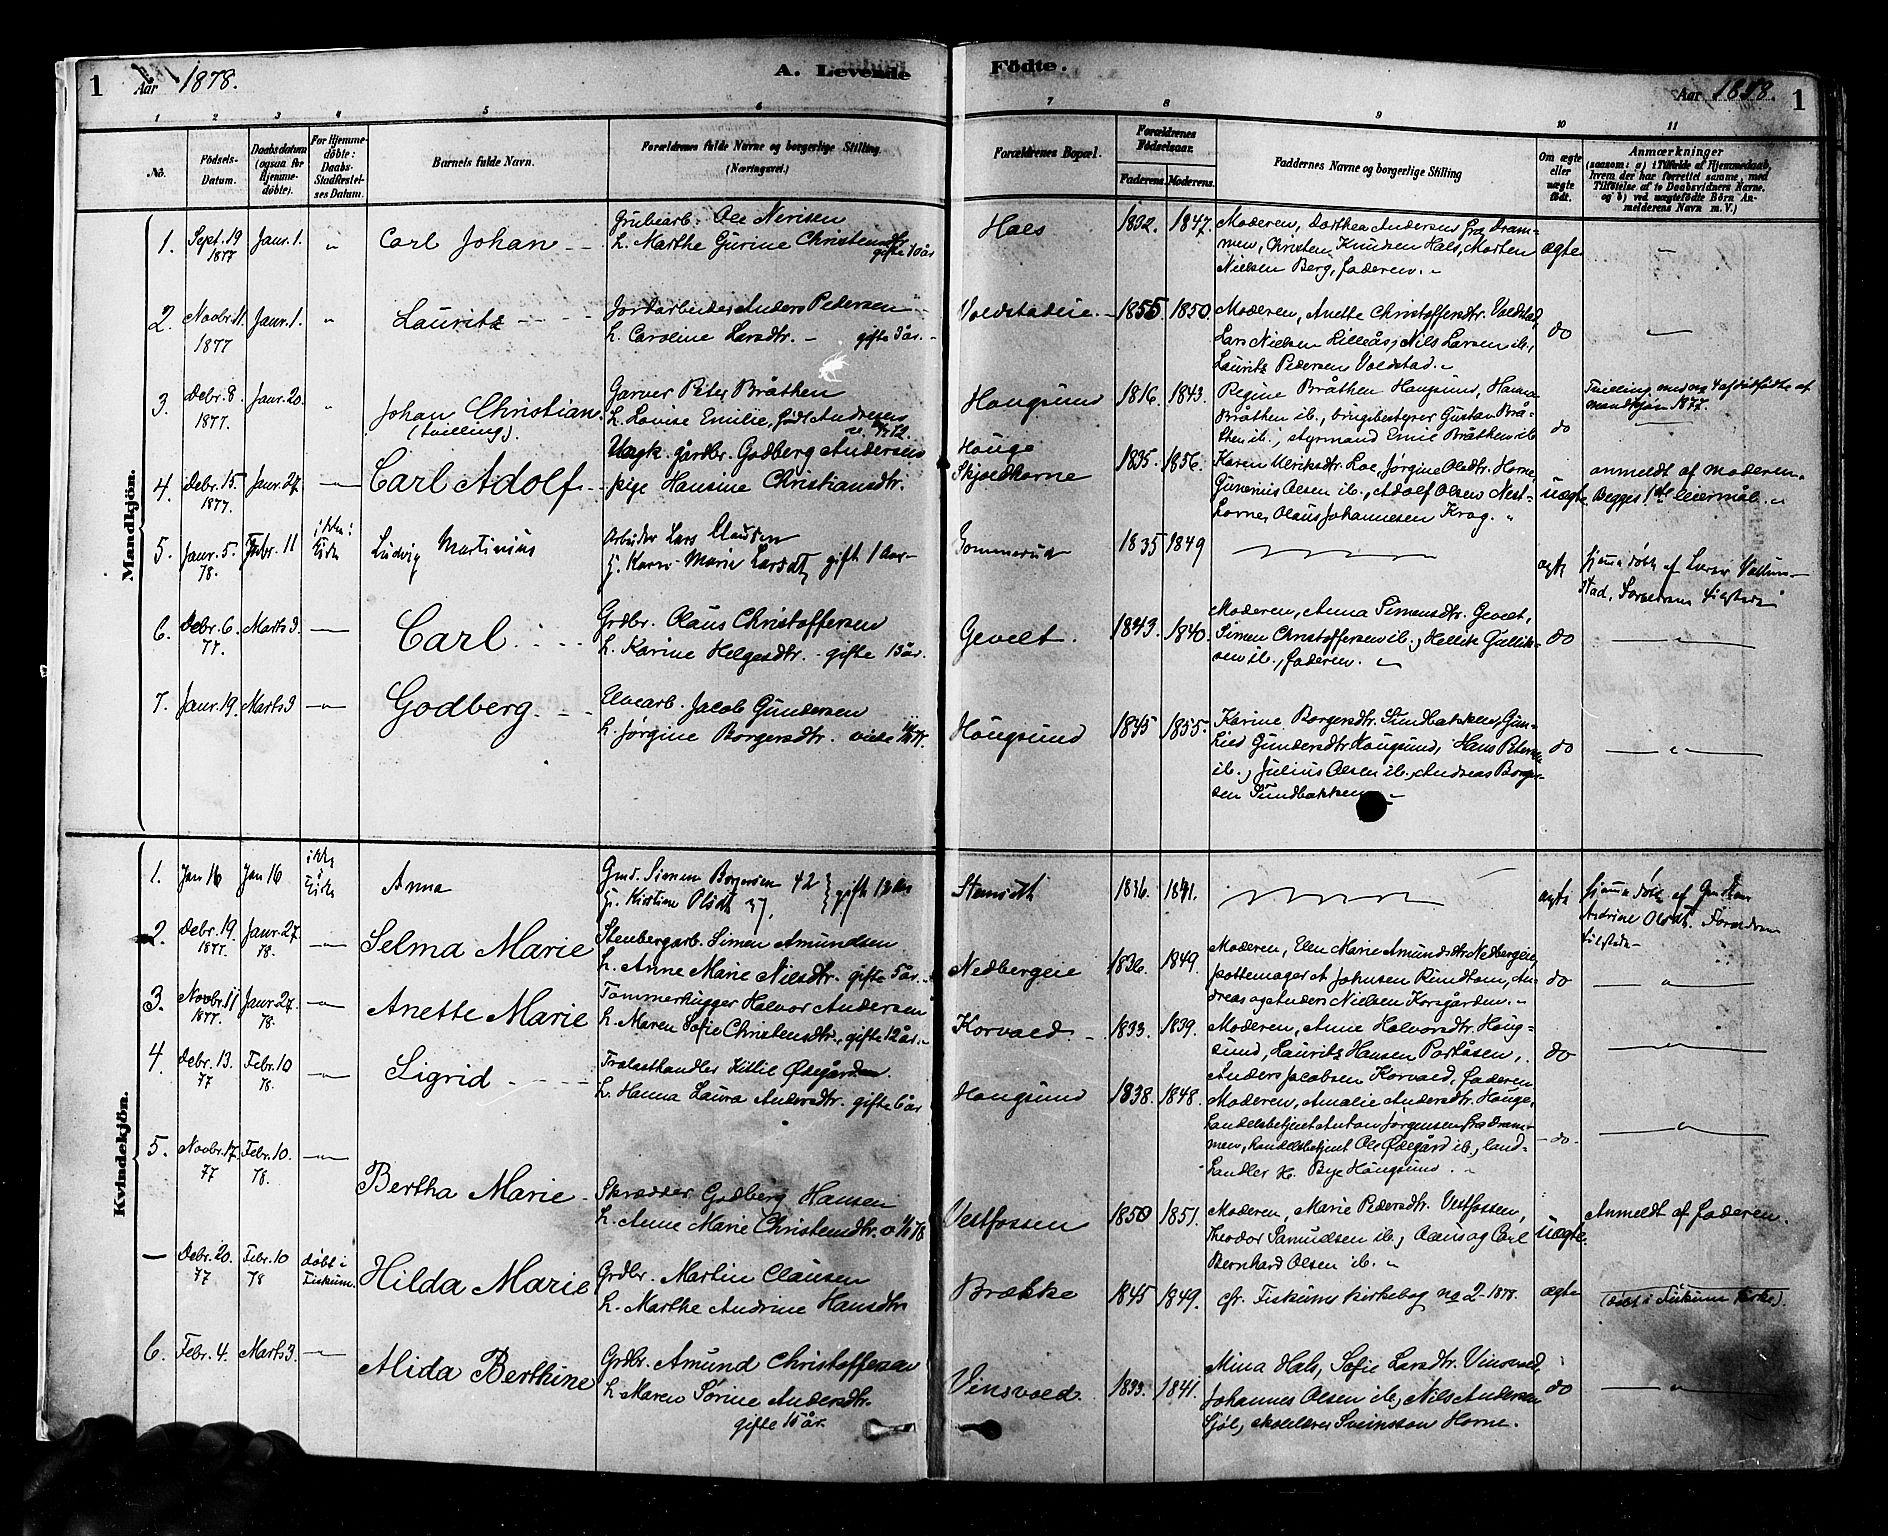 1 Aar 1878. A. Levende Födte. Aar 1878. 1
1 2 3 4 5 6 7 8 9 10 11
No. Födsels-Datum. Daabsdatum (ogsaa for Hjemme-döbte). For Hjemme-döbte: Daabs-Stadfæstel-ses Datum. Barnets fulde Navn. Forældrenes fulde Navne og borgerlige Stilling (Næringsvei.) Forældrenes Bopæl. Forældrenes Födselsaar. Faderens. Moderens. Faddernes Navne og borgerlige Stilling Om ægte eller uægte födt. Anmærkninger
(saasom: a) i Tilfælde af Hjemmedaab, hvem der har forrettet samme, med Tilföielse af to Daabsvidners Navne. og b) ved uægtefödte Börn An-melderens Navn m. V.)
Mandkjön.
1. Sept. 19 1877 Janr. 1. " Carl Johan
Grubearb. Ole Nirisen
h. Marthe Gurine Christensdtr gifte 10 år
Hals 1832. 1847.
Moderen, Dorthea Andersen fra Dram-
men, Christen Knudsen Hals, Morten
Nielsen Berg, faderen.
ægte
2. Novbr. 11 1877 Janr. 1. " Lauritz
Jordarbeider Anders Pedersen
h. Caroline Larsdtr. gifte 3 år.
Voldstadeie. 1855 1850.
Moderen, Anette Christoffersdtr. Voldstad,
Lars Nielsen Lilleås, Nils Larsen ib.,
Lauritz Pedersen Voldstad.
do
3. Debr. 8 1877. Janr. 20. " Johan Christian (tvilling).
Garver Peter Bråthen
h. Lovise Emilie, født Andersen
Hougsund 1816. 1843.
Regine Bråthen Hougsund, Hanna
Bråthen ib., brugsbestyrer Gustav Brå-
then ib., styrmand Emil Bråthen ib
do
Tvilling med no 4 af dødfødte af
mandkjøn 1877.
4. Debr. 15. 1877. Janr. 27. Carl Adolf
Ungk. gårdbr. Godberg Andersen
pige Hansine Christiansdtr.
Houge
Skjoldhorne 1835. 1856.
Karen Ulriksdtr. Loe, Jørgine Olsdtr. Horne,
Gunerius Olsen ib., Adolf Olsen Nest-
horne, Olaus Johannesen Krog.
uægte
anmeldt af moderen.
Begges 1ste leiermål.
5. Janr. 5. 78. Febr. 11 Ludvig Martinius
Arbeider Lars Clausen
h. Karen Marie Larsdt gifte 1 Aar
Gommerud 1835 1849
ægte
Hjemmedøbt af Lærer
stad, Forældrene tilstede
6. Debr. 6. 77. Marts 3. Carl
Grdbr. Olaus Christoffersen
h. Karine Helgesdtr. gifte 13 år.
Gevelt. 1843. 1840.
Moderen, Anna Simensdtr. Gevelt,
Simen Christoffersen ib., Hellik Gullik-
sen ib., faderen.
do
7. Janr. 19. Marts 3 Godberg
Elvearb. Jacob Gundersen
h. Jørgine Borgersdtr. viede
Hougsund 1845 1855.
Karine Borgersdtr. Sundbakken, Gun-
hild Gundersdtr Hougsund, Hans Petersen
ib., Julius Olsen ib., Andreas Borger-
sen Sundbakken
do
Kvindekjön.
1. Jan 16 Jan 16 Anna
Gmd. Simen Borgersen 42
h. Kirstine Olsdt 37. gifte 12 Aar
Stensedt 1836. 1841.
ægte
Hjemmedøbt af
Andrine Olsdt. Forældrene
tilstede
2. Debr. 19. 1877. Janr. 27. 78. Selma Marie
Stenbergarb. Simen Amundsen
h. Anne Marie Nilsdtr. gifte 5 år.
Nedbergeie 1836. 1849.
Moderen, Elen Marie Amundsdtr Nedbergeie,
pottemager A Johnsen Rundtom, An-
dreas og Anders Nielsen Korsgården.
do
3. Novbr. 11 1877. Janr. 27. 78. Anette Marie
Tømmerhugger Halvor Andersen
h. Maren Sofie Christensdtr., gifte 12 år.
Korvald. 1833. 1839.
Moderen, Anne Halvorsdtr. Houg-
sund, Lauritz Hansen Portåsen,
Anders Jacobsen Korvald, faderen
do
4. Debr. 13. 77 Febr. 10 78. Sigrid
Fralasthandler Kittil Ødegården.
h. Hanna Laura Andersdtr. gifte 6 år
Hougsund 1838. 1848.
Moderen, Amalie Andersdtr. Houge,
handelsbetjent Anton Jørgensen fra Dram-
men, handelsbetjent Ole Ødegård ib., land-
handler H. Bye Hougsund.
do.
5. Novbr. 17 77 Febr. 10. 78. Bertha Marie
Skrædder Godberg Hansen
h. Anne Marie Christensdtr.
Vestfossen 1850 1851.
Moderen, Marie Pedersdtr. Vestfossen,
Theodor Samuelsen ib., Adolf og Carl
Bernhard Olsen ib.
uægte.
Anmeldt af faderen.
— Debr. 20. 77 Febr. 10 78 døbt i Fiskum. Hilda Marie
Grdbr. Martin Clausen
h. Marthe Andrine Hansdtr
Brække 1845 1849.
cfr. Fiskums kirkebog no 2 1878.
ægte
(døbt i Fiskum kirke).
6. Febr. 4. Marts 3. Alida Berthine
Grdbr. Amund Christoffersen
h. Maren Sørine Andersdtr.
gifte 15 år.
Vinsvold. 1833. 1841.
Mina Hals, Sofie Larsdtr. Vinsvold,
Johannes Olsen ib., Nils Andersen
Sjøl, skolelærer Sveinsson Horne.
do